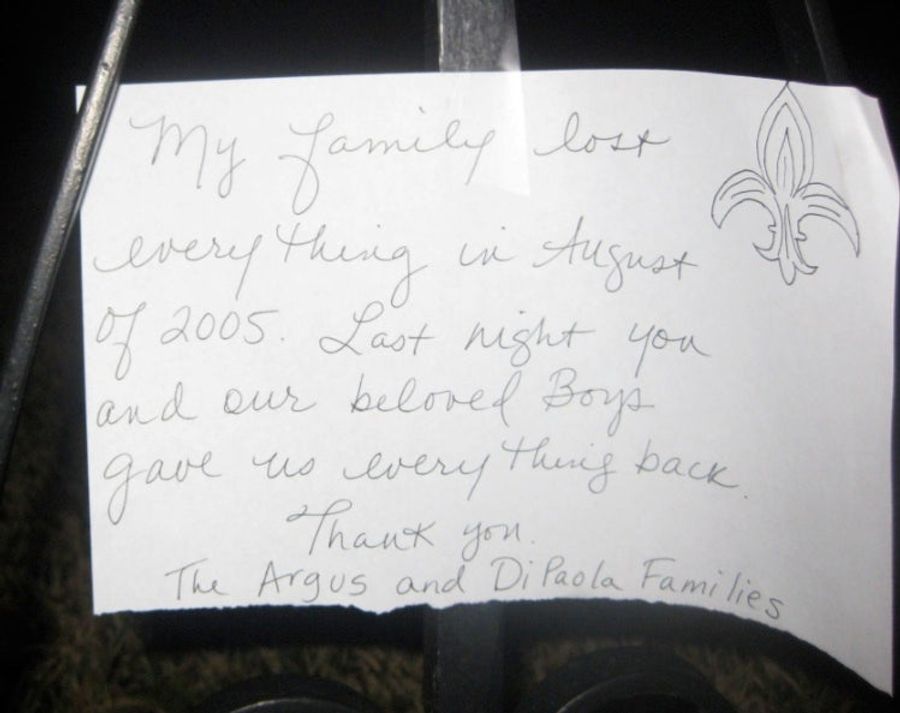 My family lost
everything in August
of 2005. Last night you
and our beloved Boys
gave us everything back.
Thank you.
The Argus and DiPaola Families